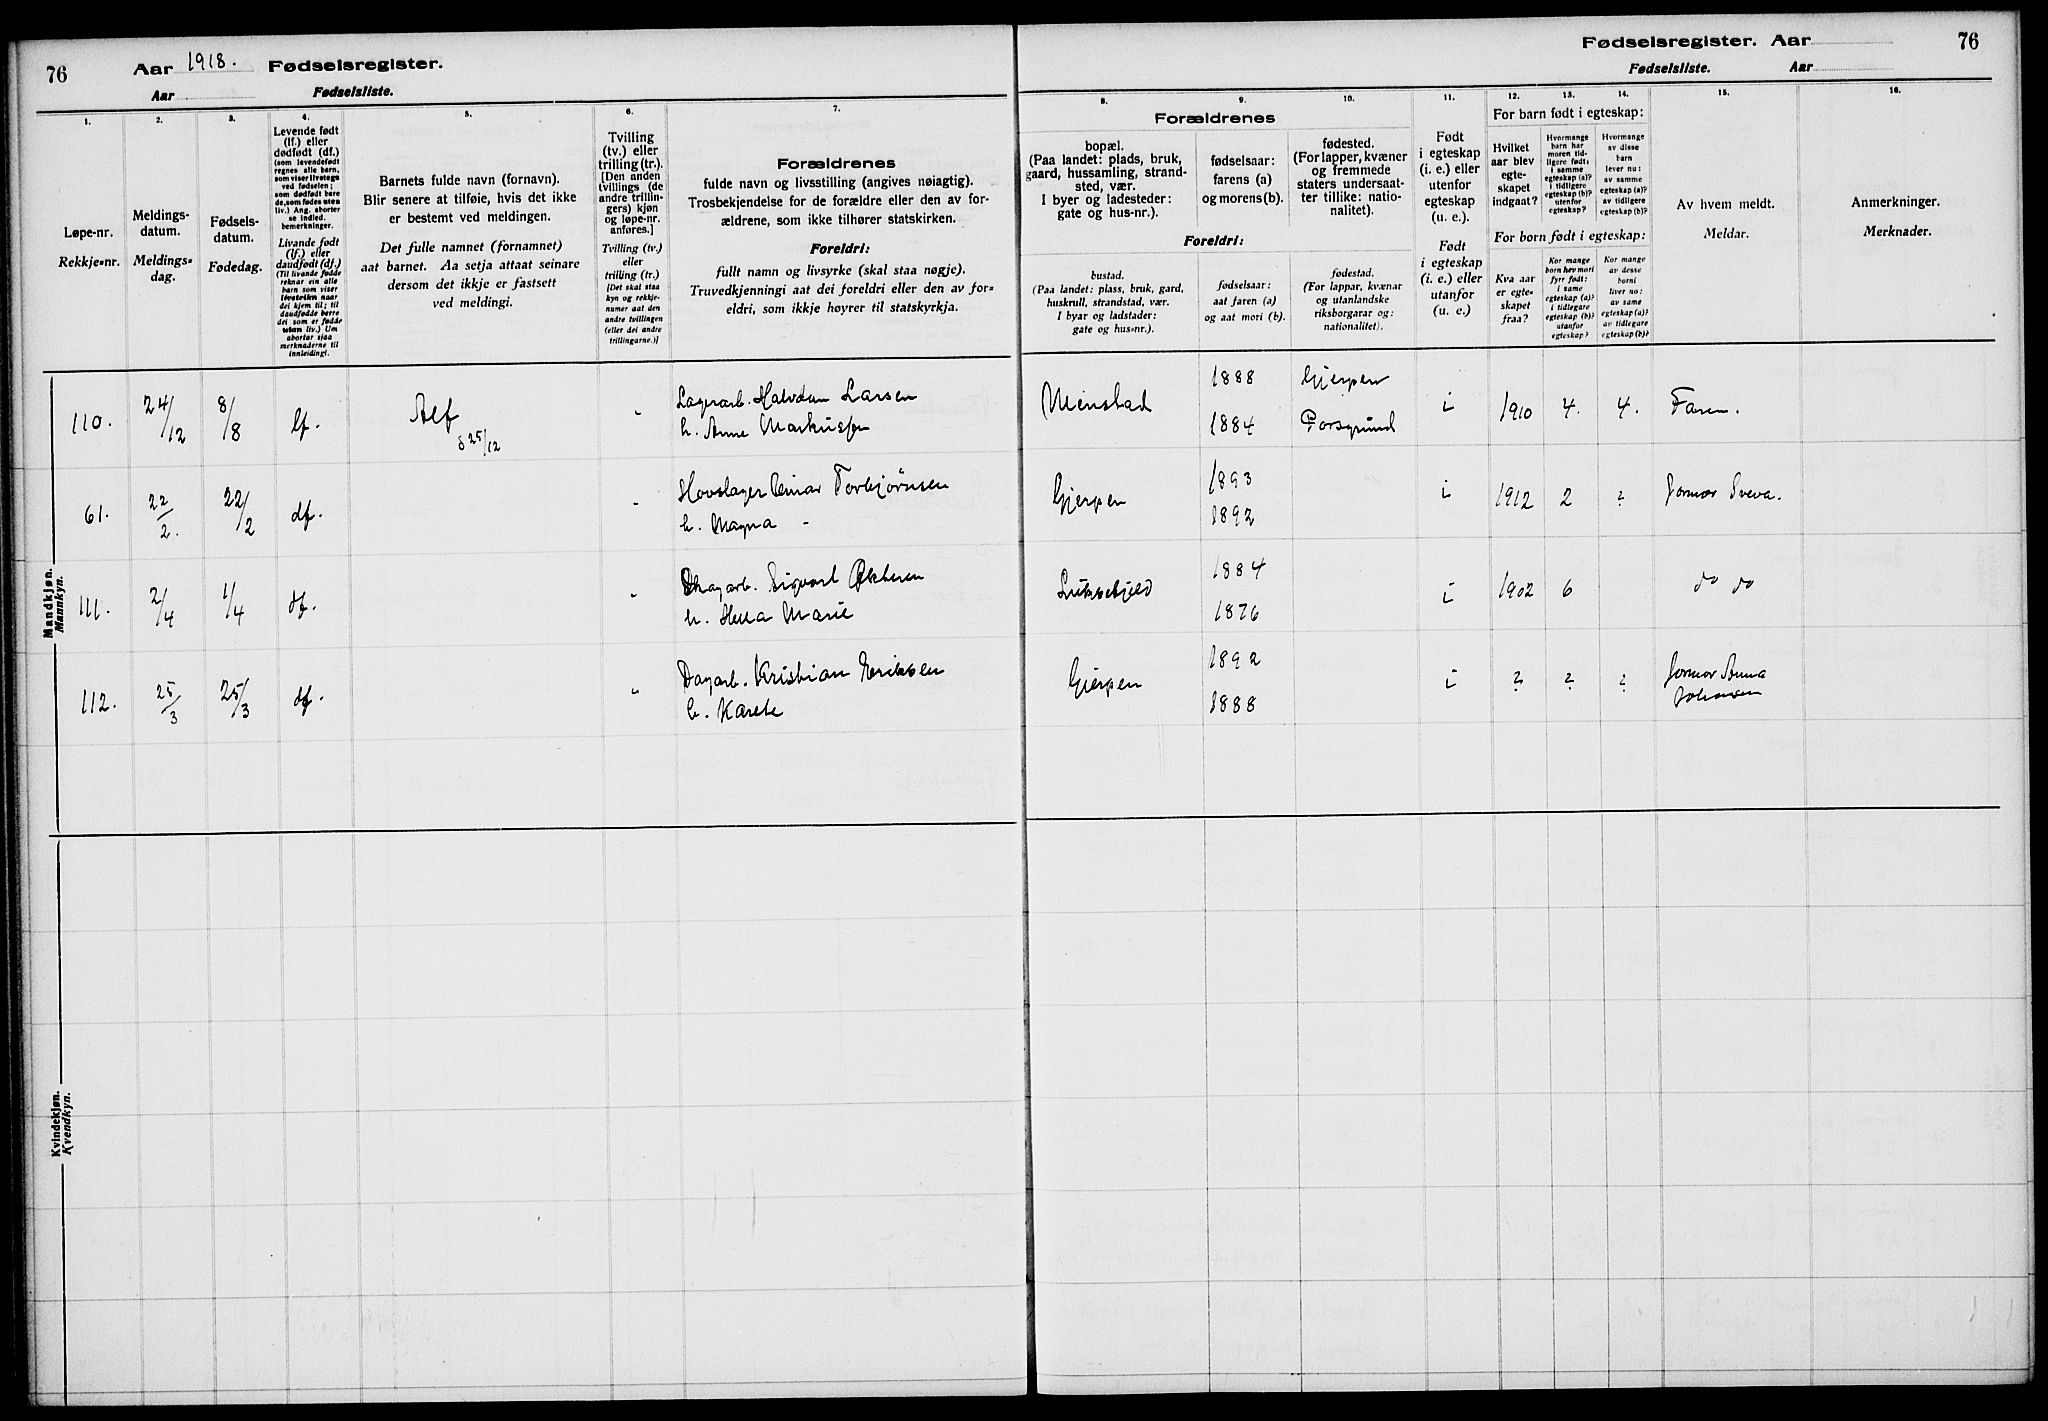 76
Aar 1918. Fødselsregister.
Aar Fødselsliste.
Fødselsregister. Aar
76
Fødselsliste. Aar
1. 2. 3. 4. 5. 6. 7.
Løpe-nr.
Rekkje-nr.
Meldings-
datum.
Meldings-
dag.
Fødsels-
datum.
Fødedag.
Levende født
(lf.) eller
dødfødt (df.)
(som levendefødt
regnes alle barn,
som viser livstegn
ved fødselen;
som dødfødt bare
de, som fødes uten
liv.) Ang. aborter
se indled.
bemerkninger.
Livande født
(lf.) eller
daudfødt (df.)
(Til livande fødde
reknar ein alle
barn som viser
livsteikn naar
dei kjem til; til
daudfødde berre
dei som er fødde
utan liv.) Um
abortar sjaa
merknaderne til
innleidingi.
Barnets fulde navn (fornavn).
Blir senere at tilføie, hvis det ikke
er bestemt ved meldingen.
Det fulle namnet (fornamnet)
aat barnet. Aa setja attaat seinare
dersom det ikkje er fastsett
ved meldingi.
Tvilling
(tv.) eller
trilling (tr.).
[Den anden
tvillings (de
andre trillin-
gers) kjøn
og løpe-nr.
anføres.]
Tvilling (tv.)
eller
trilling (tr.)
[Det skal staa
kyn og rekkje-
numer aat den
andre tvillingen
(eller dei andre
trillingarne.)]
Forældrenes
fulde navn og livsstilling (angives nøiagtig).
Trosbekjendelse for de forældre eller den av for-
ældrene, som ikke tilhører statskirken.
Foreldri:
fullt namn og livsyrke (skal staa nøgje).
Truvedkjenningi aat dei foreldri eller den av for-
eldri, som ikkje høyrer til statskyrkja.
8. 9. 10. 11. 12. 13. 14. 15. 16.
Forældrenes
bopæl.
(Paa landet: plads, bruk,
gaard, hussamling, strand-
sted, vær.
I byer og ladesteder:
gate og hus-nr.).
fødselsaar:
farens (a)
og morens (b).
fødested.
(For lapper, kvæner
og fremmede
staters undersaat-
ter tillike: natio-
nalitet).
Foreldri:
bustad.
(Paa landet: plass, bruk, gard,
huskrull, strandstad, vær.
I byar og ladstader:
gate og hus-nr.).
fødselsaar:
aat faren (a)
og aat mori (b).
fødestad.
(For lappar, kvænar
og utanlandske
riksborgarar og:
nationalitet).
Født
i egteskap
(i. e.) eller
utenfor
egteskap
(u. e.).
Født
i egteskap
(i. e.) eller
utanfor
(u. e.)
For barn født i egteskap:
Hvilket
aar blev
egte-
skapet
indgaat?
Hvormange
barn har
moren tid-
ligere født:
i samme
egteskap (a)?
i tidligere
egteskap (b)?
utenfor
egteskap?
Hvormange
av disse
barn
lever nu:
av samme
egteskap (a)?
av tidligere
egteskap (b)?
For born født i egteskap:
Kva aar
er egte-
skapet
fraa?
Kor mange
born hev mori
fyrr født:
i same
egteskap (a)?
i tidlegare
egteskap (b)?
utanfor
egteskap?
Kor mange
av desse
borni
liver no:
av same
egteskap (a)?
av tidlegare
egteskap (b)?
Av hvem meldt.
Meldar.
Anmerkninger.
Merknader.
Mandkjøn.
Mannkyn.
110. 24/12 8/8 lf. Alf " Lagerarb. Halvdan Larsen Menstad 1888 Gjerpen i 1910 4. 4. Faren.
d 25/12 h. Anne Markussen 1884 Porsgrund
61. 22/2. 22/2 df. " Hovslager Einar Torbjørnsen Gjerpen 1893 i 1912 2 ? Jormor Sveva.
h. Magna - 1892
111. 2/4 1/4 df. " Sigvart 1884 i 1902 6 do do
h. Marie 1876
112. 25/3 25/3 df. " Dagarb. Kristian Eriksen Gjerpen 1892 i ? ? ? Jormor Anna
h. Karete 1888 Johansen
Kvindekjøn.
Kvendkyn.